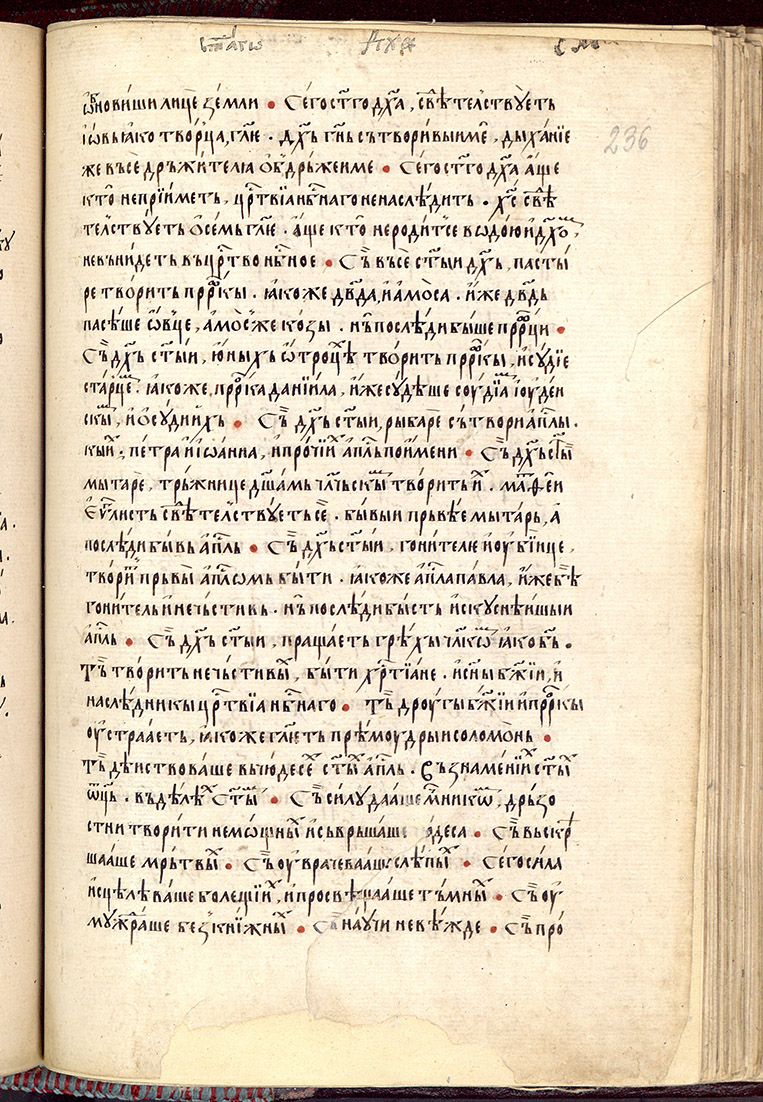 ст҃аго дх҃а
236
ѡ҆бнови́ши лицѐ землѝ • Сего̀ ст҃го дх҃а, свѣ́телствꙋеть
і҆́ѡвь ꙗ҆́ко творца̀, гл҃ѐ . дх҃ь гн҃ь сътвори́выи мѐ , дыха́нїе
же въседръжи́телꙗ ѡ҆бдръжѐ ме • Сего̀ ст҃го дх҃а, а҆́ще
кто̀ не прїи́меть, црⷭ҇твїа нбⷭ҇наго не наслѣ́дить . хⷭ҇ свѣ́
телствꙋеть ѡ҆ семь гл҃ѐ . а҆́ще кто̀ не роди́тсе водо́ю и҆ дх҃ѡⷨ,
не въни́деть въ црⷭ҇тво нбⷭ҇ное • Съ̀ въсѐ ст҃ы́и дх҃ь, пасты́
ре твори́ть прⷪ҇ро́кы . ꙗ҆́коже дв҃да, и҆ а҆мѡ́са . и҆́же дв҃дь
пасѣ́ше ѡ҆́вце, а҆мѡ́сже ко́зы . нь̀ послѣди́ бы́ше прⷪ҇ро́ци •
Съ̀ дх҃ь ст҃ы́и, ю҆́ныхъ ѡ҆́троцѣ твори́ть прⷪ҇ро́кы, и҆ сꙋдїѐ
ста́рцеⷨ . ꙗ҆́коже, прⷪ҇ро́ка данїи́ла, и҆́же сꙋдѣ́ше соудїа́ⷨ іоуде́и
скыⷨ, и҆ ѡ҆сꙋди́ и҆́хъ • Съ̀ дх҃ь ст҃ы́и, рыба́ре сътворѝ а҆пⷭ҇лы .
кы́иⷯ, пе́тра и҆ і҆ѡа́нна, и҆ про́чїиⷯ а҆пⷭ҇ль по и҆́мени • Съ̀ дх҃ь ст҃ы́и
мыта́ре, тръ́жнице дш҃амь чл҃чьскыⷨ твори́ть и҆́ⷯ . матѳе́и
е҆ѵⷢ҇ли́сть свѣ́телствꙋеть сѐ . бы́выи пръ́вѣе мыта́рь, а҆
послѣди́ бы́вь а҆пⷭ҇ль • Съ̀ дх҃ь ст҃ы́и, гони́телю и҆ оубі́ице,
твори́ пръ́выⷨ а҆пⷭ҇лѡмь бы́ти . ꙗ҆́коже а҆пⷭ҇ла па́вла, и҆́же бѣ̀
гони́тель и҆ нечьсти́вь . нь̀ послѣди́ бы́сть и҆скꙋснѣ́ишыи
а҆пⷭ҇ль • Съ̀ дх҃ь ст҃ы́и, пра́щаеть грѣ́хы чл҃кѡⷨ ꙗ҆́ко бь҃ .
Тъ̀ твори́ть нечьсти́выⷯ, бы́ти хрⷭ҇тїа́не . и҆ сн҃ы бж҃їи, и҆
наслѣ́дникы црⷭ҇твїа нбⷭ҇наго • Тъ̀ дроугы́ бж҃їи и҆ прⷪ҇ро́кы
оу҆стра́аеть, ꙗ҆́коже гл҃еть прѣмоу́дрыи соломо́нь •
Тъ̀ дѣ́иствоваше въ чю́десеⷯ ст҃ыⷯ а҆пⷭ҇ль . Съ̀ зна́менїиⷯ ст҃ыⷯ
ѻ҆ц҃ь . въ дѣ́лѣⷯ ст҃ыⷨ • Съ̀ си́лꙋ даа́ше мⷱ҇нико́ⷨ, дръ́зо
стни твори́ти немѡ́щныⷯ и҆ съвръша́аше чюдеса • Съ̀ въскрⷭ҇
ша́аше мръ́твыⷯ • Съ̀ оу҆врачева́аше слѣ́пыⷯ • Сего̀ си́ла
и҆сцѣлѣ́ваше болещїиⷯ, и҆ просвѣща́аше тъ́мныⷯ • Съ̀ оу҆
мꙋдра́аше бескни́жныⷯ • Съ̀ наꙋчи́ невѣ́жде • Съ̀ про́